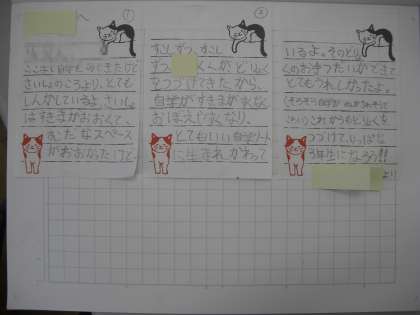 へ
①
ここまで自学をやってきたけど
さいしょのころより、とても
しんかしているよ。さいしょ
はすきまがおおくて、
むだなスペース
がおおかったけど、
②
すこしずつ、すこし
ずつ くんがどりょく
をつづけてきたから、
自学がすきまがすくなく
おぼえやすくなり、
とてもいい自学ノート
に生まれかわって
いるよ。そのどりょ
くのお手つだいができて
とてもうれしかったよ。
これからもどりょくを
つづけて、りっぱな
3年生になろう!!
より